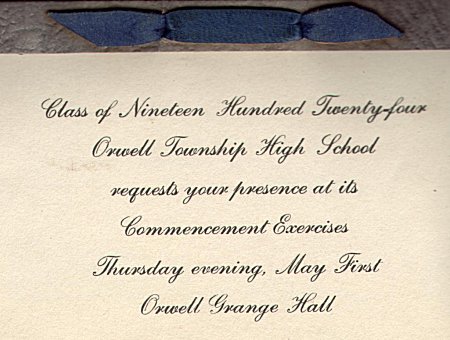 Class of Nineteen Hundred Twenty-four
Orwell Township High School
requests your presence at its
Commencement Exercises
Thursday evening, May First
Orwell Grange Hall